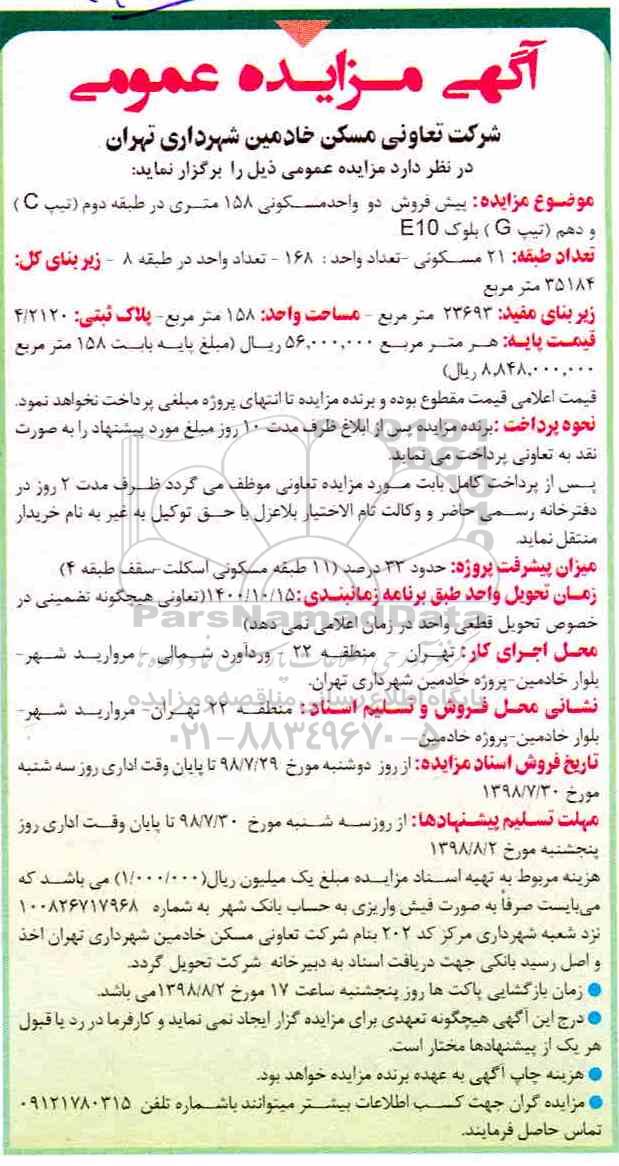 آگهی مزایده عمومی
شرکت تعاونی مسکن خادمین شهرداری تهران
در نظر دارد مزایده عمومی ذیل را برگزار نماید:
موضوع مزایده: پیش فروش دو واحدمسکونی ۱۵۸ متری در طبقه دوم (تیپ C)
و دهم (تیپ G) بلوک E10
تعداد طبقه: ۲۱ مسکونی -تعداد واحد: ۱۶۸ - تعداد واحد در طبقه ۸ - زیر بنای کل:
۳۵۱۸۴ متر مربع
زیر بنای مفید: ۲۳۶۹۳ متر مربع - مساحت واحد: ۱۵۸ متر مربع- پلاک ثبتی: ۴/۲۱۲۰
قیمت پایه: هر متر مربع ۵۶,۰۰۰,۰۰۰ ریال (مبلغ پایه بابت ۱۵۸ متر مربع
۸,۸۴۸,۰۰۰,۰۰۰ ریال)
قیمت اعلامی قیمت مقطوع بوده و برنده مزایده تا انتهای پروژه مبلغی پرداخت نخواهد نمود.
نحوه پرداخت: برنده مزایده پس از ابلاغ ظرف مدت ۱۰ روز مبلغ مورد پیشنهاد را به صورت
نقد به تعاونی پرداخت می نماید.
پس از پرداخت کامل بابت مورد مزایده تعاونی موظف می گردد ظرف مدت ۲ روز در
دفترخانه رسمی حاضر و وکالت تام الاختیار بلاعزل با حق توکیل به غیر به نام خریدار
منتقل نماید.
میزان پیشرفت پروژه: حدود ۳۳ درصد (۱۱ طبقه مسکونی اسکلت-سقف طبقه ۴)
زمان تحویل واحد طبق برنامه زمانبندی: ۱۴۰۰/۱۰/۱۵(تعاونی هیچگونه تضمینی در
خصوص تحویل قطعی واحد در زمان اعلامی نمی دهد)
محل اجرای کار: تهران - منطقه ۲۲ - وردآورد شمالی - مروارید شهر-
بلوار خادمین-پروژه خادمین شهرداری تهران.
نشانی محل فروش و تسلیم اسناد: منطقه ۲۲ تهران- مروارید شهر-
بلوار خادمین-پروژه خادمین
تاریخ فروش اسناد مزایده: از روز دوشنبه مورخ ۹۸/۷/۲۹ تا پایان وقت اداری روز سه شنبه
مورخ ۱۳۹۸/۷/۳۰
مهلت تسلیم پیشنهادها: از روزسه شنبه مورخ ۹۸/۷/۳۰ تا پایان وقت اداری روز
پنجشنبه مورخ ۱۳۹۸/۸/۲
هزینه مربوط به تهیه اسناد مزایده مبلغ یک میلیون ریال(۱/۰۰۰/۰۰۰) می باشد که
می‌بایست صرفاً به صورت فیش واریزی به حساب بانک شهر به شماره ۱۰۰۸۲۶۷۱۷۹۶۸
نزد شعبه شهرداری مرکز کد ۲۰۲ بنام شرکت تعاونی مسکن خادمین شهرداری تهران اخذ
و اصل رسید بانکی جهت دریافت اسناد به دبیرخانه شرکت تحویل گردد.
● زمان بازگشایی پاکت ها روز پنجشنبه ساعت ۱۷ مورخ ۱۳۹۸/۸/۲می باشد.
● درج این آگهی هیچگونه تعهدی برای مزایده گزار ایجاد نمی نماید و کارفرما در رد یا قبول
هر یک از پیشنهادها مختار است.
● هزینه چاپ آگهی به عهده برنده مزایده خواهد بود.
● مزایده گران جهت کسب اطلاعات بیشتر میتوانند باشماره تلفن ۰۹۱۲۱۷۸۰۳۱۵
تماس حاصل فرمایند.
ParsNamadData
پایگاه اطلاع رسانی مناقصه و مزایده
۰۲۱-۸۸۳۴۹۶۷۰-۵